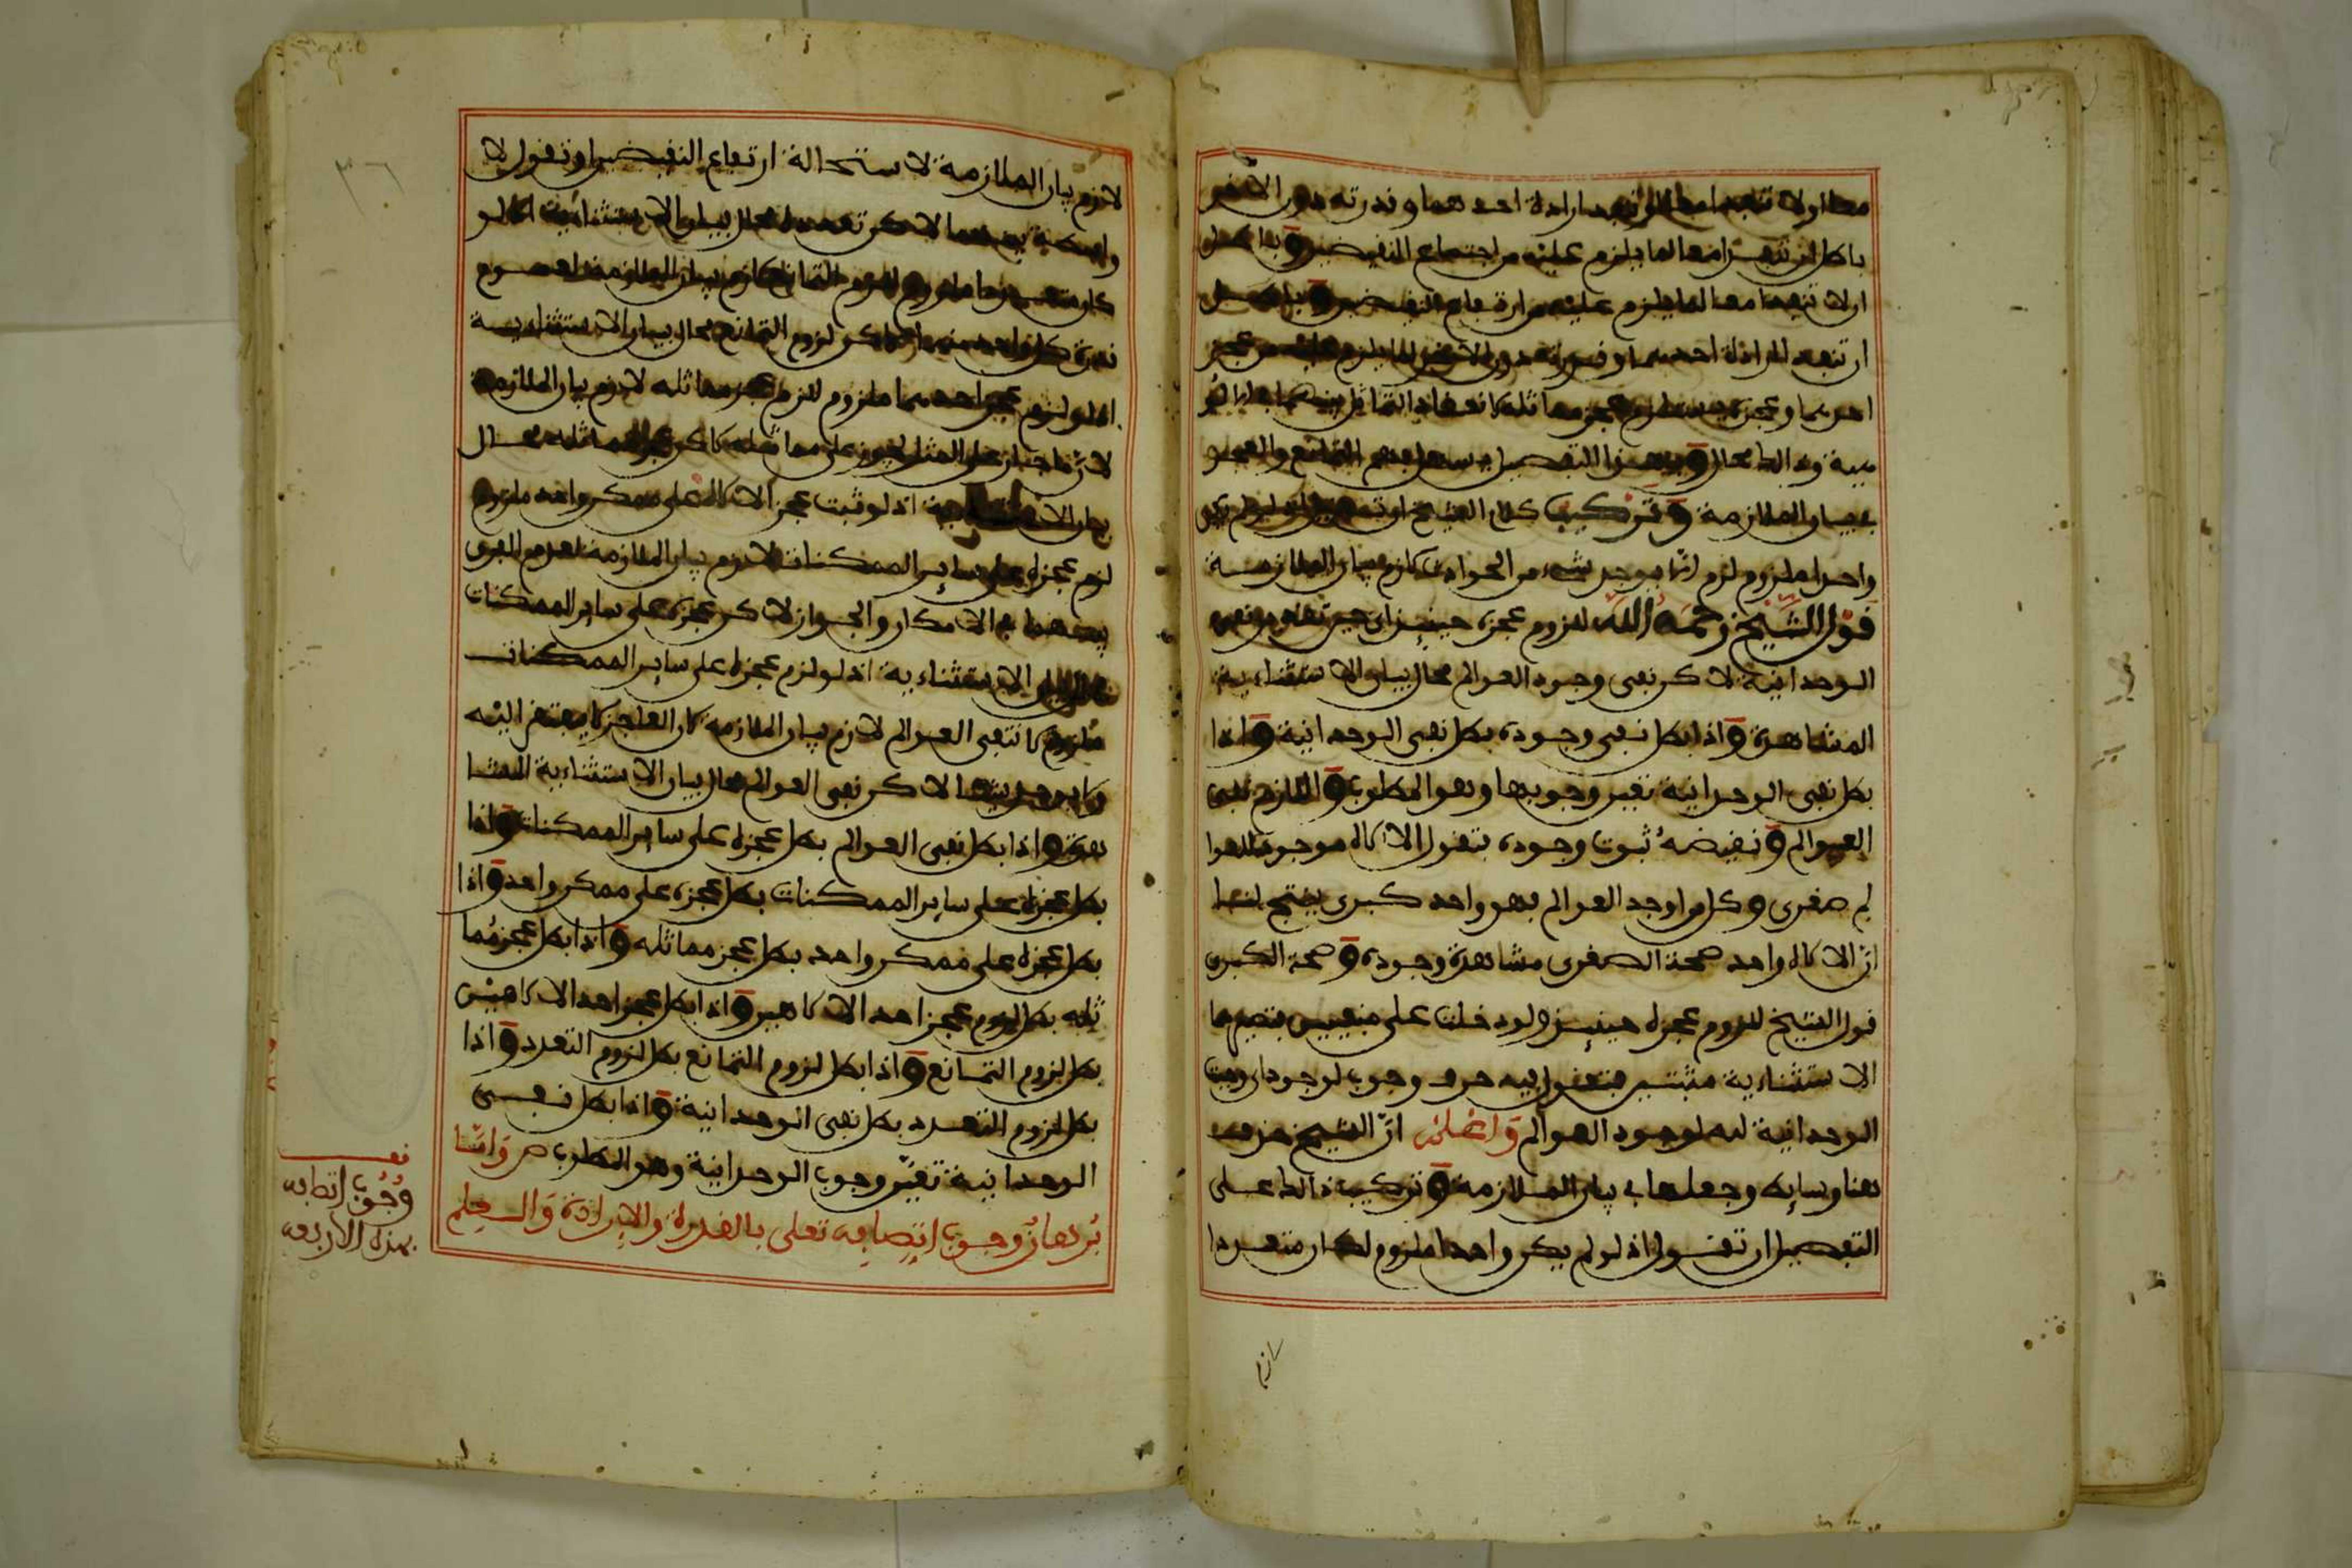 باطل ان تنفذا معا لما يلزم عليه من اجتماع النقيضين وباطل
ان لا تنفذا معا لما يلزم عليه من ارتفاع النقيضين وباطل
ان تنفذ ارادة احدهما وقدرته دون الاخر لما يلزم عليه من عجز
بيان الملازمة وتركيب كلام الشيخ ان تقول لو لم يكن
واحدا ملزوم لزم ان لا يوجد شيء من الحوادث لازم بيان الملازمة
قول الشيخ رحمه الله للزوم عجزه حينئذ اي حين تقدير نفي
الوحدانية لاكن نفي وجود العوالم محال بيان الاستثناءية
المشاهدة واذا بطل نفي وجوده بطل نفي الوحدانية واذا
بطل نفي الوحدانية تعين وجوبها وهو المطلوب واللازم نفي
العوالم ونقيضه ثبوت وجوده فتقول الالاه موجد للعوا
لم صغرى وكل من اوجد العوالم فهو واحد كبرى ينتج لنا
ان الالاه واحد صحة الصغرى مشاهدة وجوده وصحة الكبرى
قول الشيخ للزوم عجزه حينئذ ولو دخلت على منفيين فتصيرهما
الاستثناءية مثبتين فتقول فيه حرف وجوب لوجود اي وجبت
الوحدانية له لوجود العوالم واعلم ان الشيخ حذف
هنا وسايط وجعلها في بيان الملازمة وتركيب ذالك على
التفصيل ان تقول اذ لو لم يكن واحدا ملزوم لكان متعددا
لازم
لازم بيان الملازمة لاستحالة ارتفاع النقيضين او تقول لا
واسطة بينهما لاكن تعدده محال بيان الاستثناءية اذ لو
كان متعددا ملزوم للزم التمانع لازم بيان الملازمة لعموم
قدرة كل واحد منهما لاكن لزوم التمانع محال بيان الاستثناءية
اذ لو لزم عجز احدهما ملزوم للزم عجز مماثله لازم بيان الملازمة
لان ما جاز على المثل يجوز على مماثله لاكن عجز مماثله محال
بيان الاستثناءية اذ لو ثبت عجز الالاه على ممكن واحد ملزوم
لزم عجزه على ساير الممكنات لازم بيان الملازمة لعدم الفرق
بينهما في الامكان والجواز لاكن عجزه على ساير الممكنات
محال بيان الاستثناءية اذ لو لزم عجزه على ساير الممكنات
ملزوم لانتفى العوالم لازم بيان الملازمة لان العاجز لا يفتقر اليه
ولا يوجد شيئا لاكن نفي العوالم محال بيان الاستثناءية المشا
هدة واذا بطل نفي العوالم بطل عجزه على ساير الممكنات واذا
بطل عجزه على ساير الممكنات بطل عجزه على ممكن واحد واذا
بطل عجزه على ممكن واحد بطل عجز مماثله واذا بطل عجز مما
ثله بطل لزوم عجز احد الالاهين واذا بطل عجز احد الالاهين
بطل لزوم التمانع واذا بطل لزوم التمانع بطل لزوم التعدد واذا
بطل لزوم التعدد بطل نفي الوحدانية واذا بطل نفي
الوحدانية تعين وجوب الوحدانية وهو المطلوب ص واما
برهان وجوب اتصافه تعلى بالقدرة والارادة والعلم
وجوب اتصافه
بهذه الاربعة